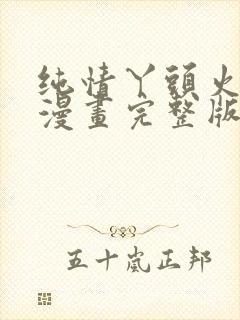 纯情丫頭火
漫畫完整版
五十嵐正邦